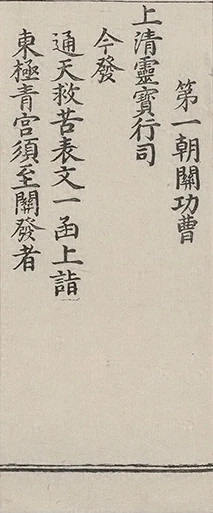 第一朝關功曹
上清靈寶行司
今發
通天救苦表文一函上詣
東極青宮須至關發者